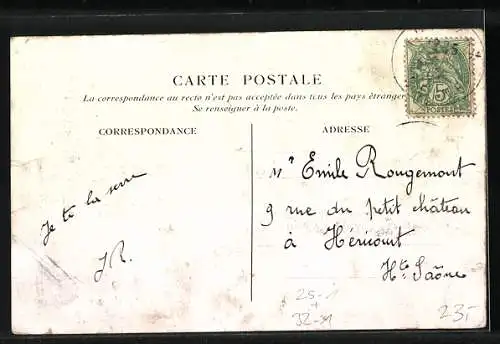 CARTE POSTALE
La correspondance au recto n'est pas acceptée dans tous les pays étrangers
Se renseigner à la poste.
CORRESPONDANCE
ADRESSE
Mr Emile Rougemont
9 rue du petit château
à Héricourt
Hte Saône
Je te la serre
JR.
5c
POSTES
25-1
32-41
23,-